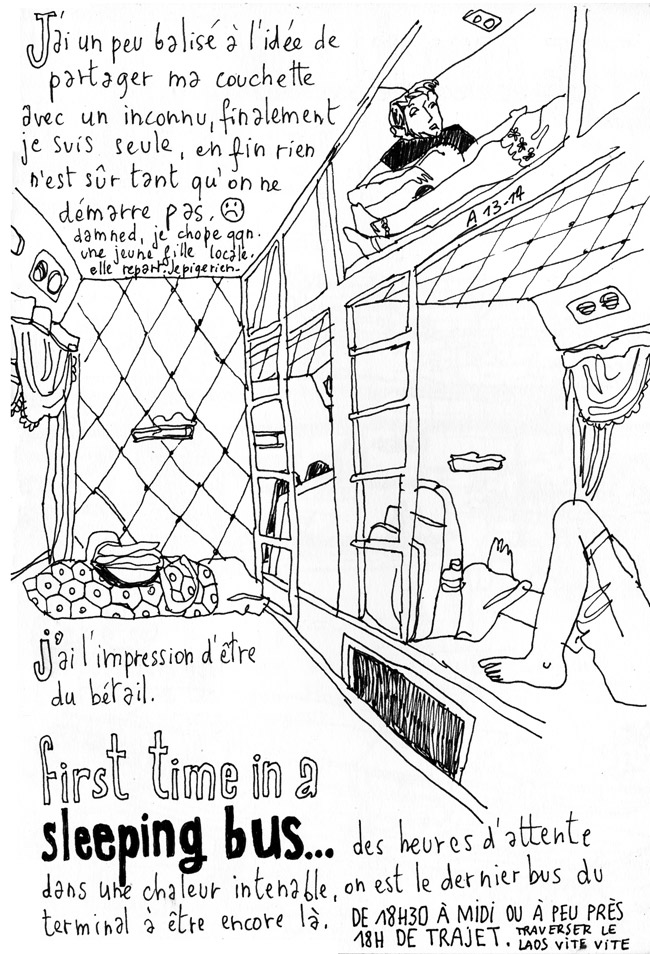 J'ai un peu balisé à l'idée de
partager ma couchette
avec un inconnu, finalement
je suis seule, enfin rien
n'est sûr tant qu'on ne
démarre pas. ☹
damned, je chope qqn.
une jeune fille locale.
elle repart. Je pige rien.
A 13-14
j'ai l'impression d'être
du bétail.
first time in a
sleeping bus... des heures d'attente
dans une chaleur intenable, on est le dernier bus du
terminal à être encore là. DE 18H30 À MIDI OU À PEU PRÈS
18H DE TRAJET. TRAVERSER LE
LAOS VITE VITE